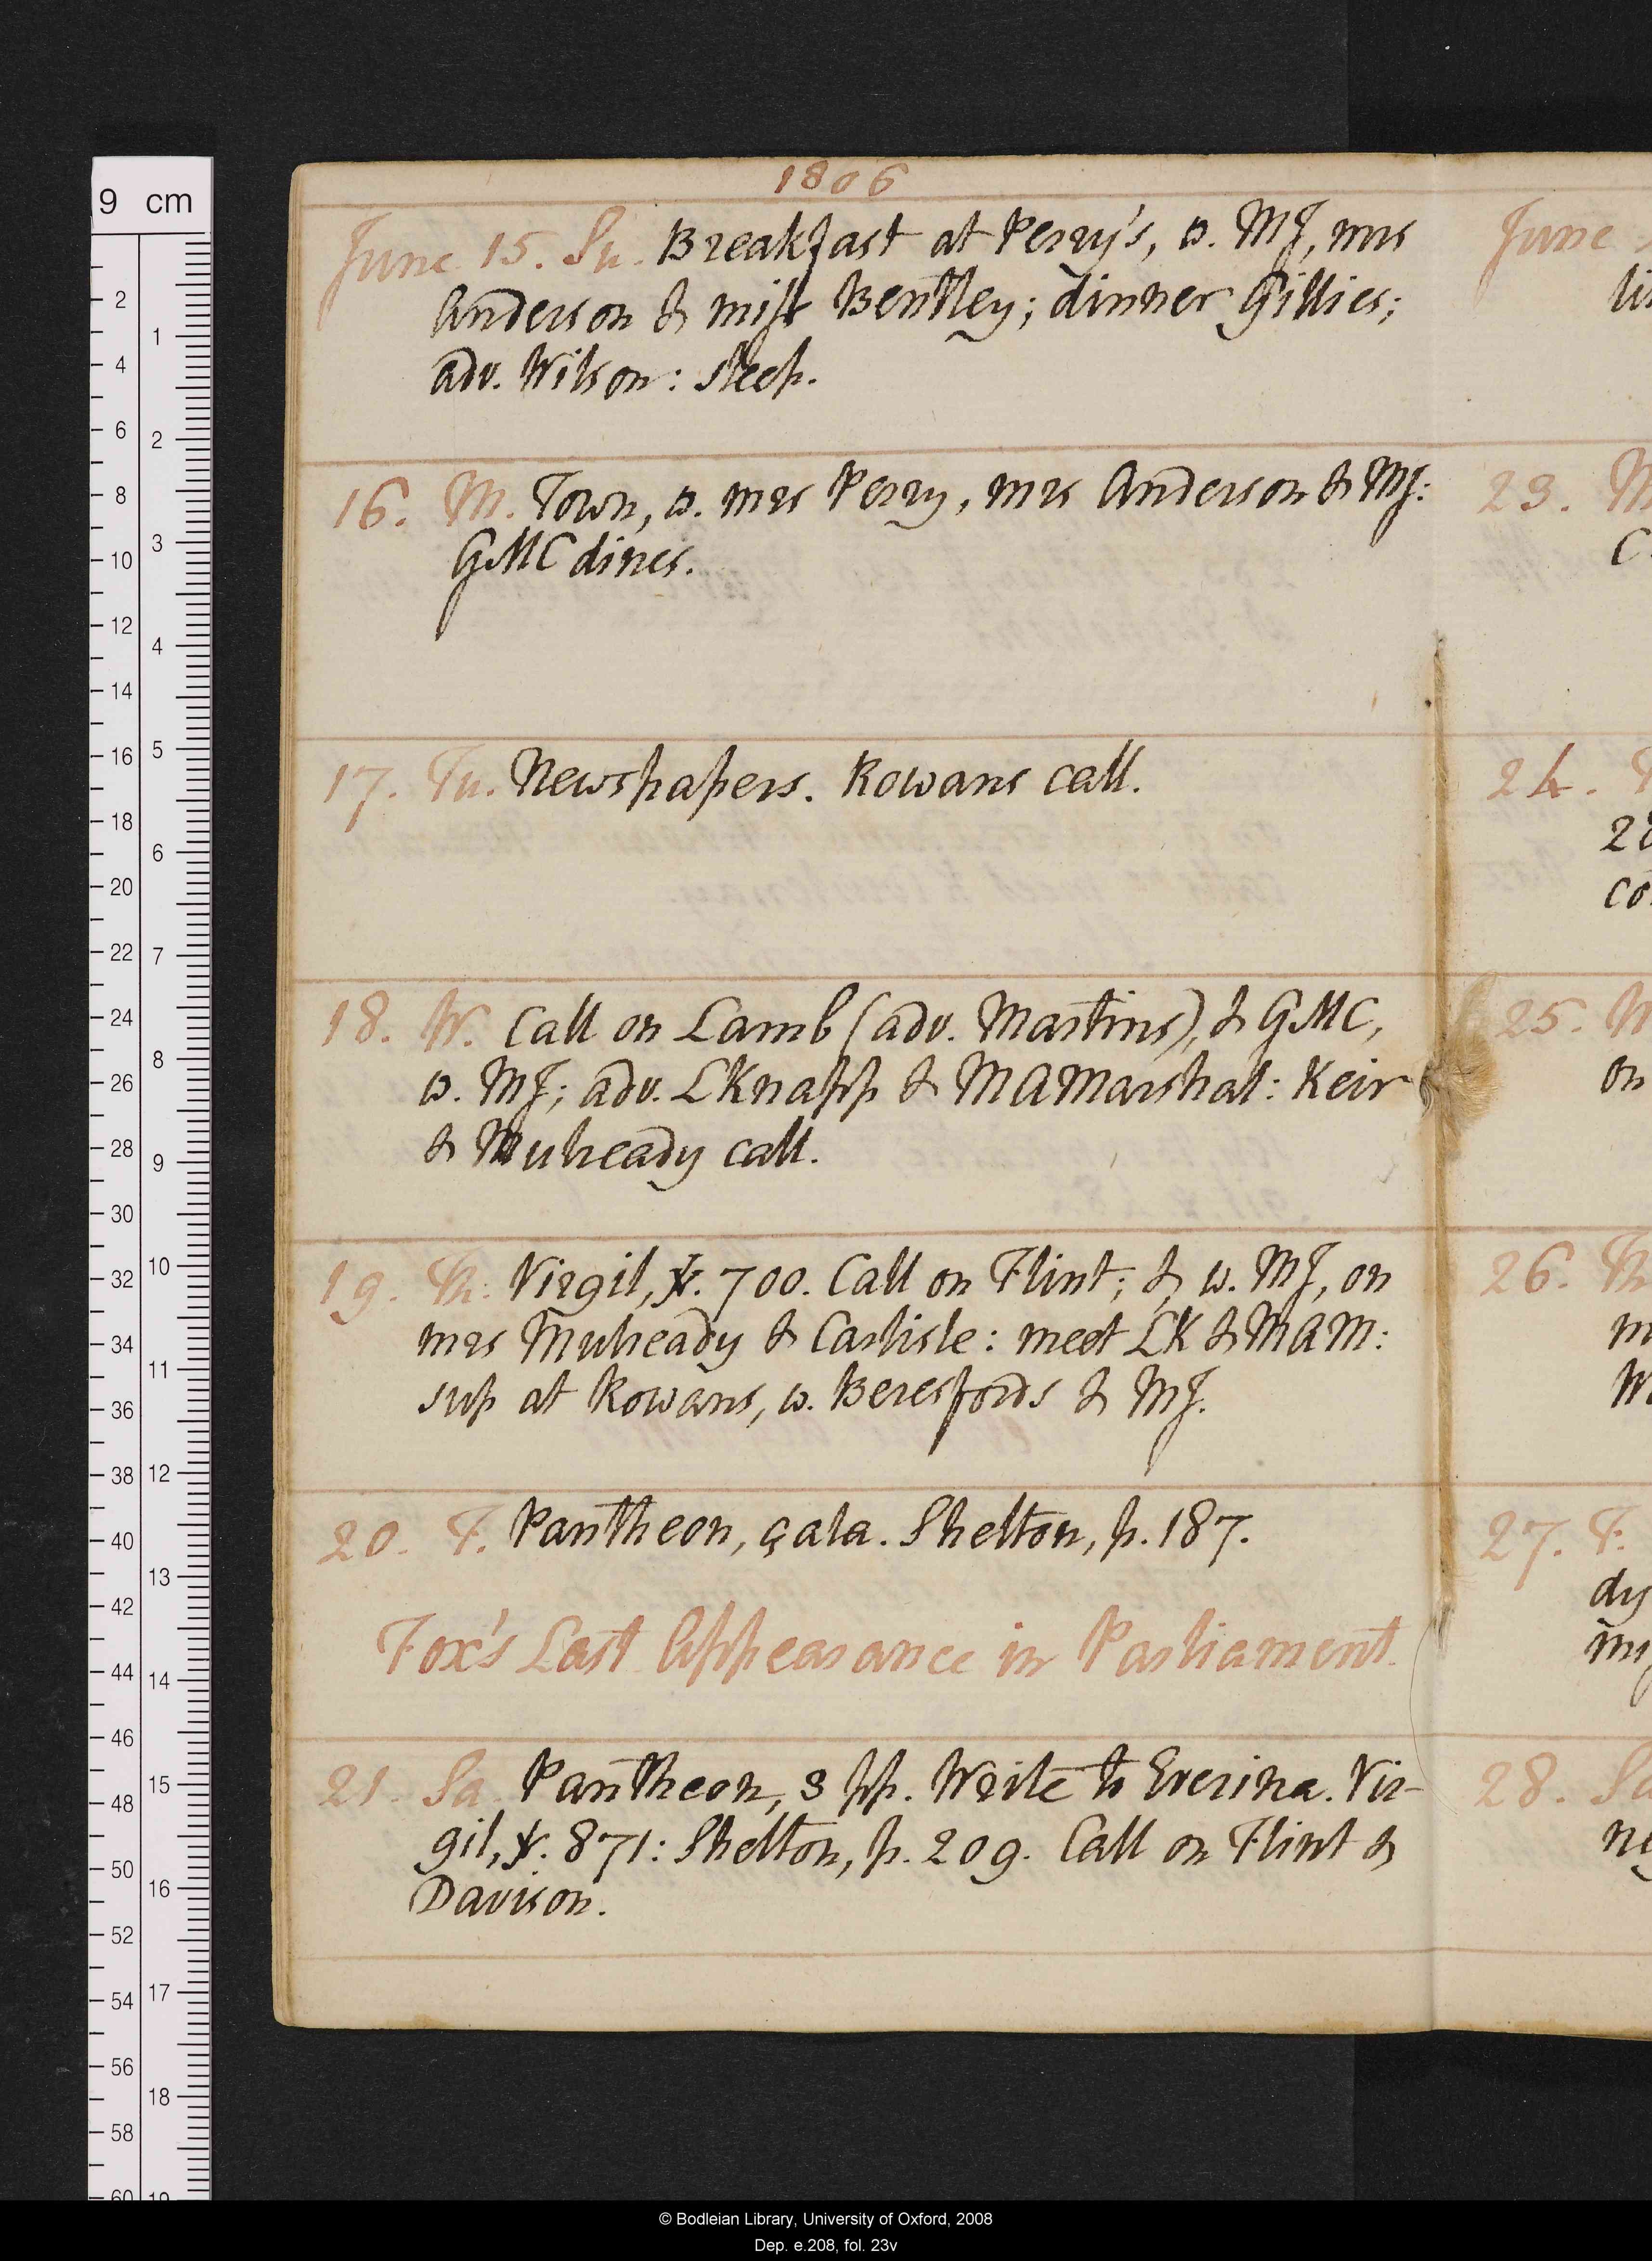 1806
June 15. Su. Breakfast at Perry's, w. MJ, mrs
Anderson & miss Bentley; dinner Gillies;
adv. Wilson: sleep.
16. M. Town, w. mrs Perry, mrs Anderson & MJ:
GMC dines.
17. Tu. Newspapers. Rowans call.
18. W. Call on Lamb (adv. Martins), & GMC,
w. MJ; adv. LKnapp & MAMarshal: Keir
& Muheady call.
19. Th. Virgil, ỳ. 700. Call on Flint; &, w. MJ, on
mrs Muheady & Carlisle: meet LK & MAM:
sup at Rowans, w. Beresfords & MJ.
20. F. Pantheon, çala. Shelton, p. 187.
Fox's Last Appearance in Parliament.
21. Sa. Pantheon, 3 pp. Write to Everina. Vir-
gil, ỳ. 871: Shelton, p. 209. Call on Flint &
Davison.
June
23. M
C
24.
co
25. W
on
26. Th
m
W
27. F.
dy
28. Sa
9 cm
2
4
6
8
10
12
14
16
18
20
22
24
26
28
30
32
34
36
38
40
42
44
46
48
50
52
54
56
58
60
1
2
3
4
5
6
7
8
9
10
11
12
13
14
15
16
17
18
19
© Bodleian Library, University of Oxford, 2008
Dep. e.208, fol. 23v